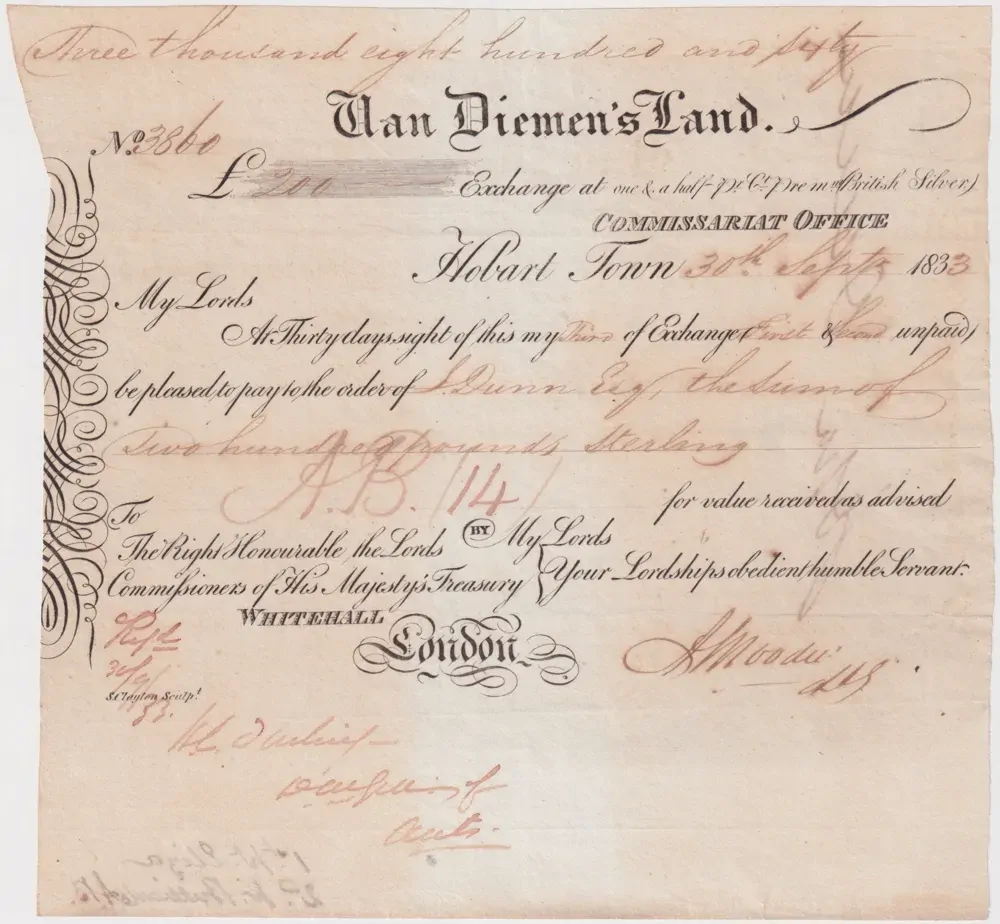 Three thousand eight hundred and sixty
Van Diemen's Land.
No. 3860
£ 200 Exchange at one & a half Pr. Ct. Prem. (British Silver)
COMMISSARIAT OFFICE
Hobart Town 30th Septr 1833
My Lords
At Thirty days sight of this my Third of Exchange (First & Second unpaid)
be pleased to pay to the order of J. Dunn Esq, the sum of
Two hundred pounds Sterling
A.B. (14)
for value received as advised
To
BY My Lords
The Right Honourable the Lords
Commissioners of His Majesty's Treasury
Your Lordships obedient humble Servant.
WHITEHALL
London
A Moodie
30/9/33.
S. Clayton Sculpt.
of